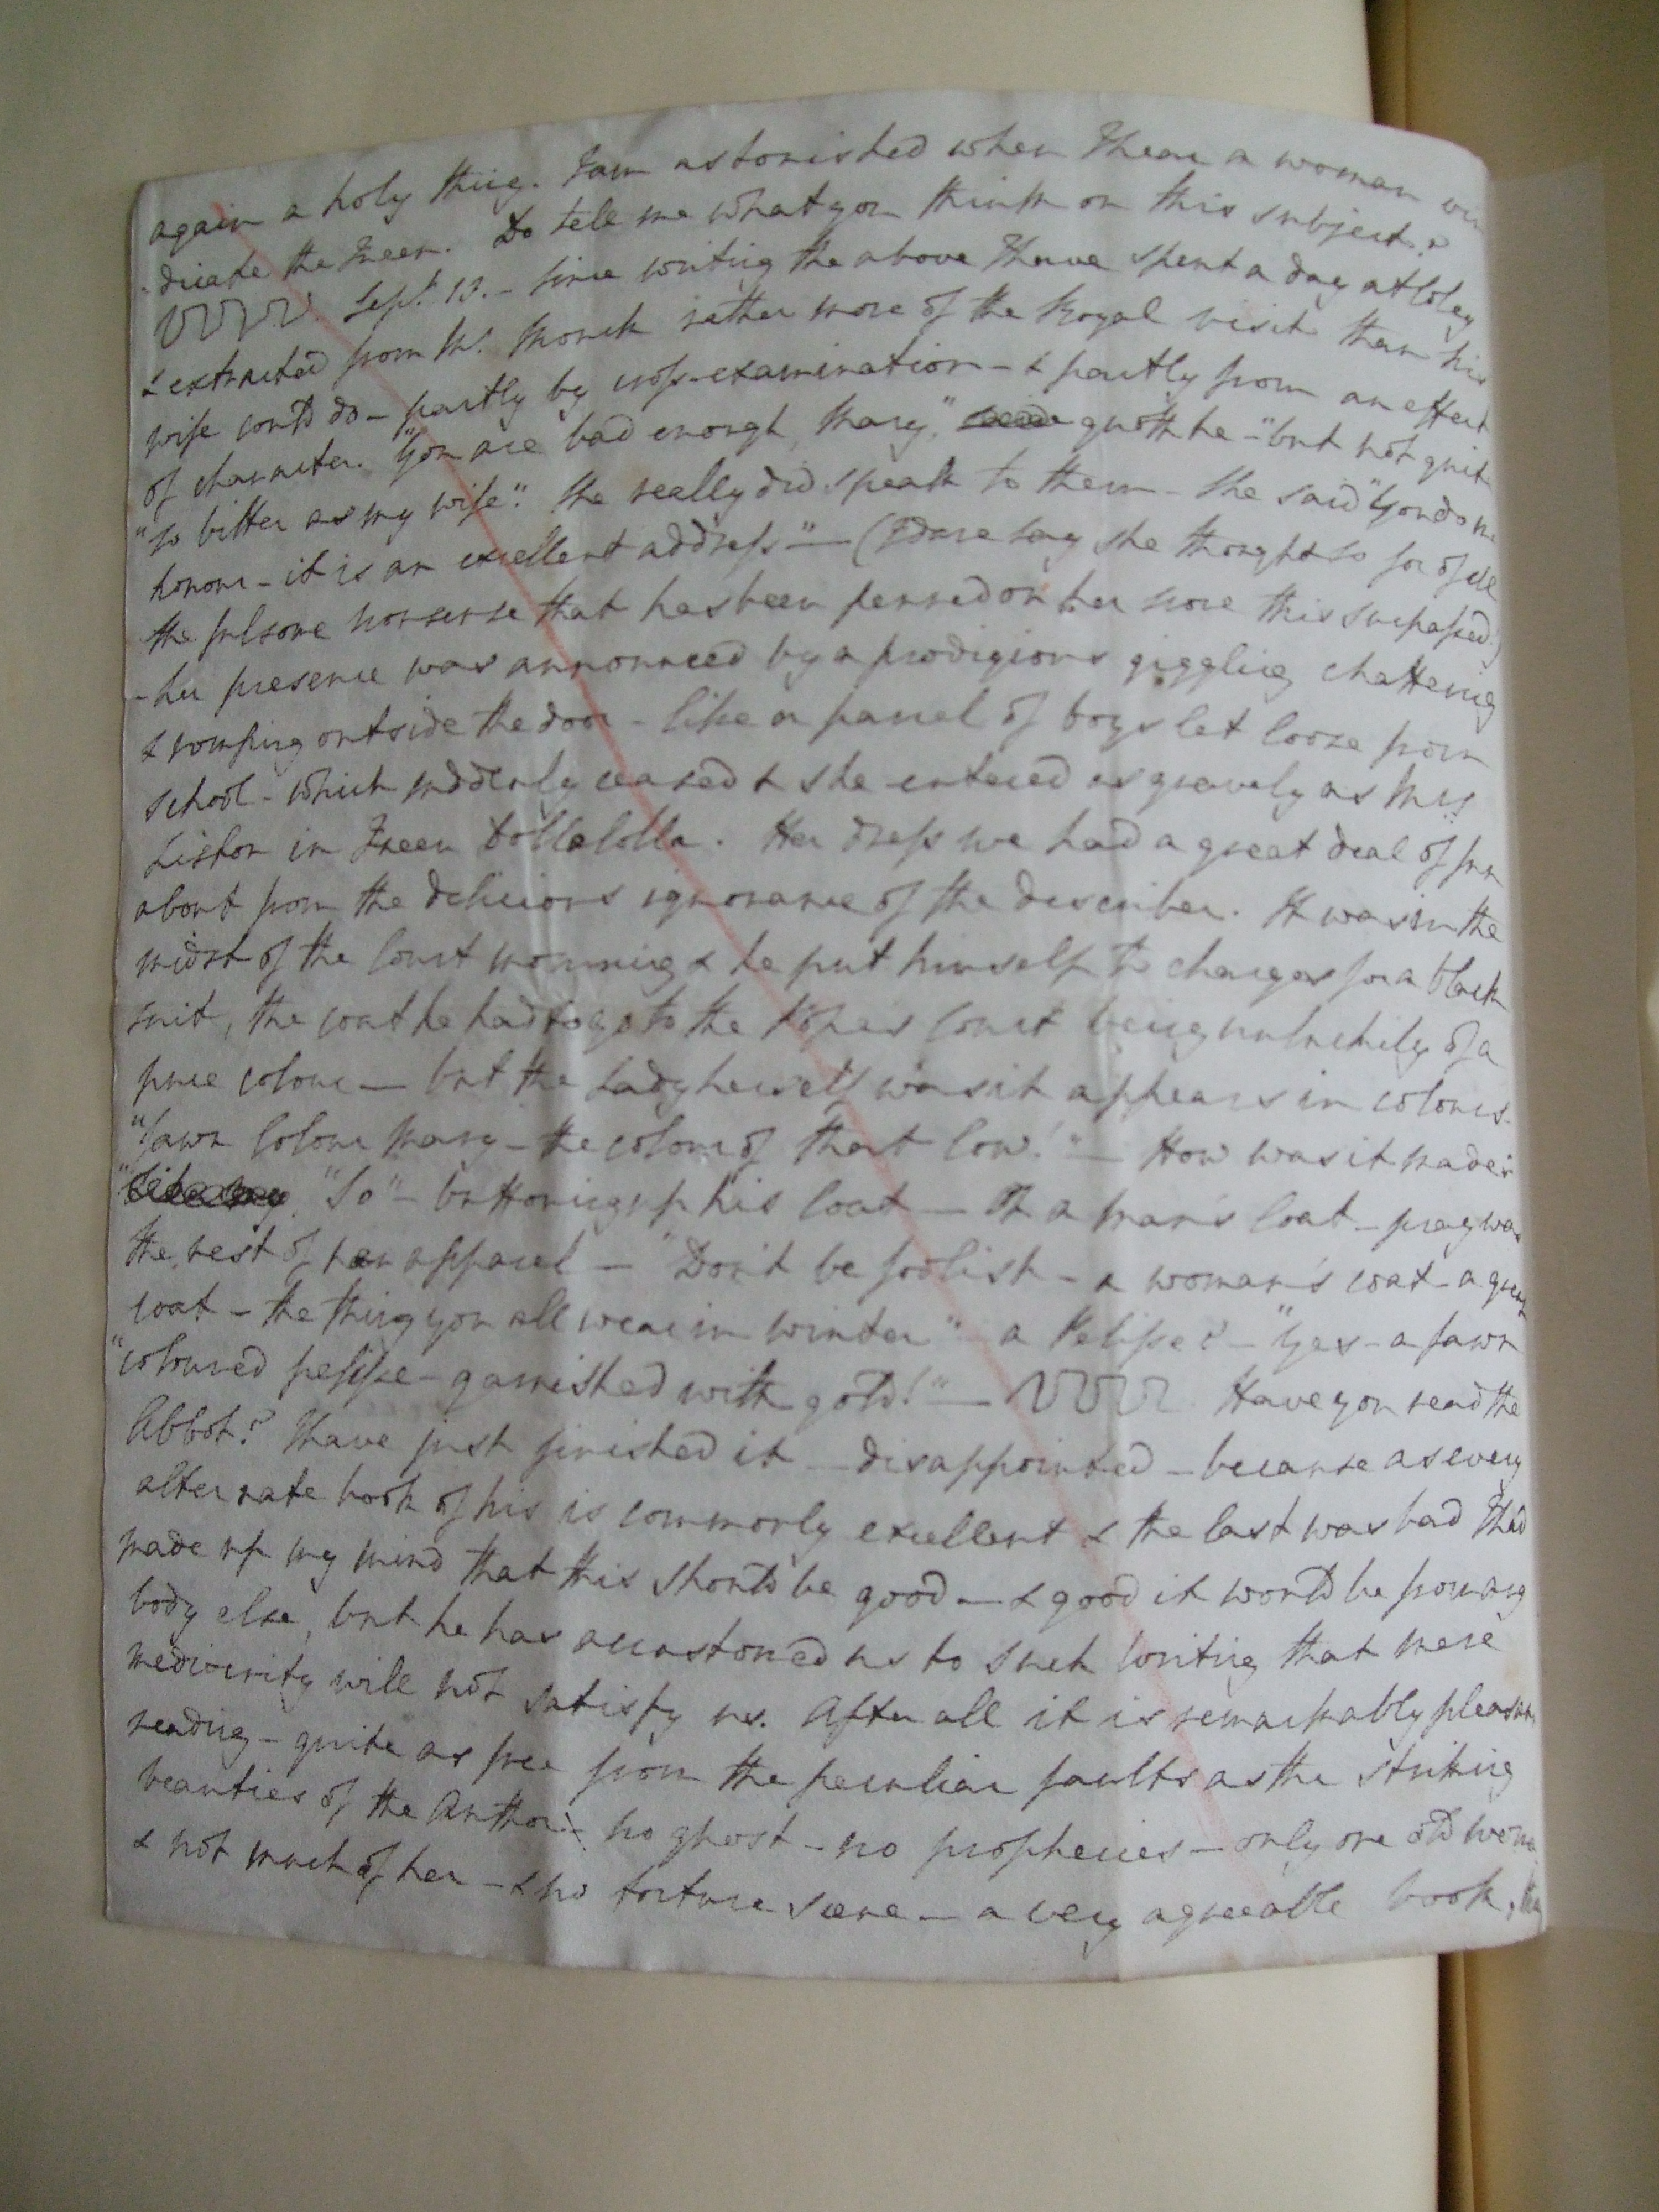 again a holy thing. I am astonished when I hear a woman vin
-dicate the Queen. Do tell me what you think on this subject.?
Sept. 13. – Since writing the above I have spent a day at Coley
& extracted from Mr. Monck rather more of the Royal visit than his
wife could do – partly by cross-examination – & partly from an effect
of character. "You are bad enough, Mary," quoth he – "but not quite
"so bitter as my wife". She really did speak to them – She said "You do me
honour – it is an excellent address" – (I dare say she thought so for of all
the fulsome nonsense that has been penned on her none this surpassed.)
- her presence was announced by a prodigious giggling chattering
& romping outside the door – like a parcel of boys let loose from
school – which suddenly ceased & she entered as gravely as Mrs.
Liston in Queen Dollalolla. Her dress we had a great deal of fun
about from the delicious ignorance of the describer. It was in the
midst of the Court mourning & he put himself to charges for a black
suit, the coat he had to go to the Pope's Court being unluckily of a
puce colour — but the Lady herself was it appears in colours.
"Fawn colour Mary – the colour of that Cow!" – How was it made?
"So" – buttoning up his Coat – Of a man's Coat – pray was
the rest of her apparel – "Don't be foolish – a woman's coat – a great
coat – the thing you all wear in winter" – a Pelisse? – "Yes – a fawn
"coloured pelisse – garnished with gold!" — Have you read the
Abbot? I have just finished it – disappointed – because as every
alternate book of his is commonly excellent & the last was bad I had
made up my mind that this should be good – & good it would be from any
body else, but he has accustomed us to such writing that mere
mediocrity will not satisfy us. After all it is remarkably pleasant
reading – quite as free from the peculiar faults as the striking
beauties of the Author – no ghost – no prophecies – only one old woman
& not much of her – & no torture scene – a very agreeable book,